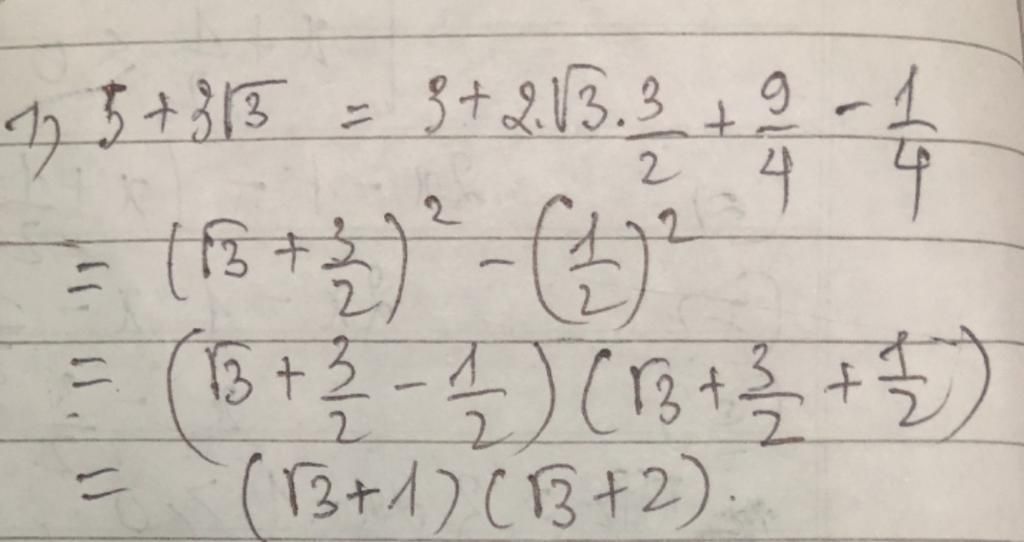 1) 5 + 3√3 = 3 + 2.√3.3/2 + 9/4 - 1/4
= (√3 + 3/2)² - (1/2)²
= (√3 + 3/2 - 1/2) (√3 + 3/2 + 1/2)
= (√3 + 1) (√3 + 2).